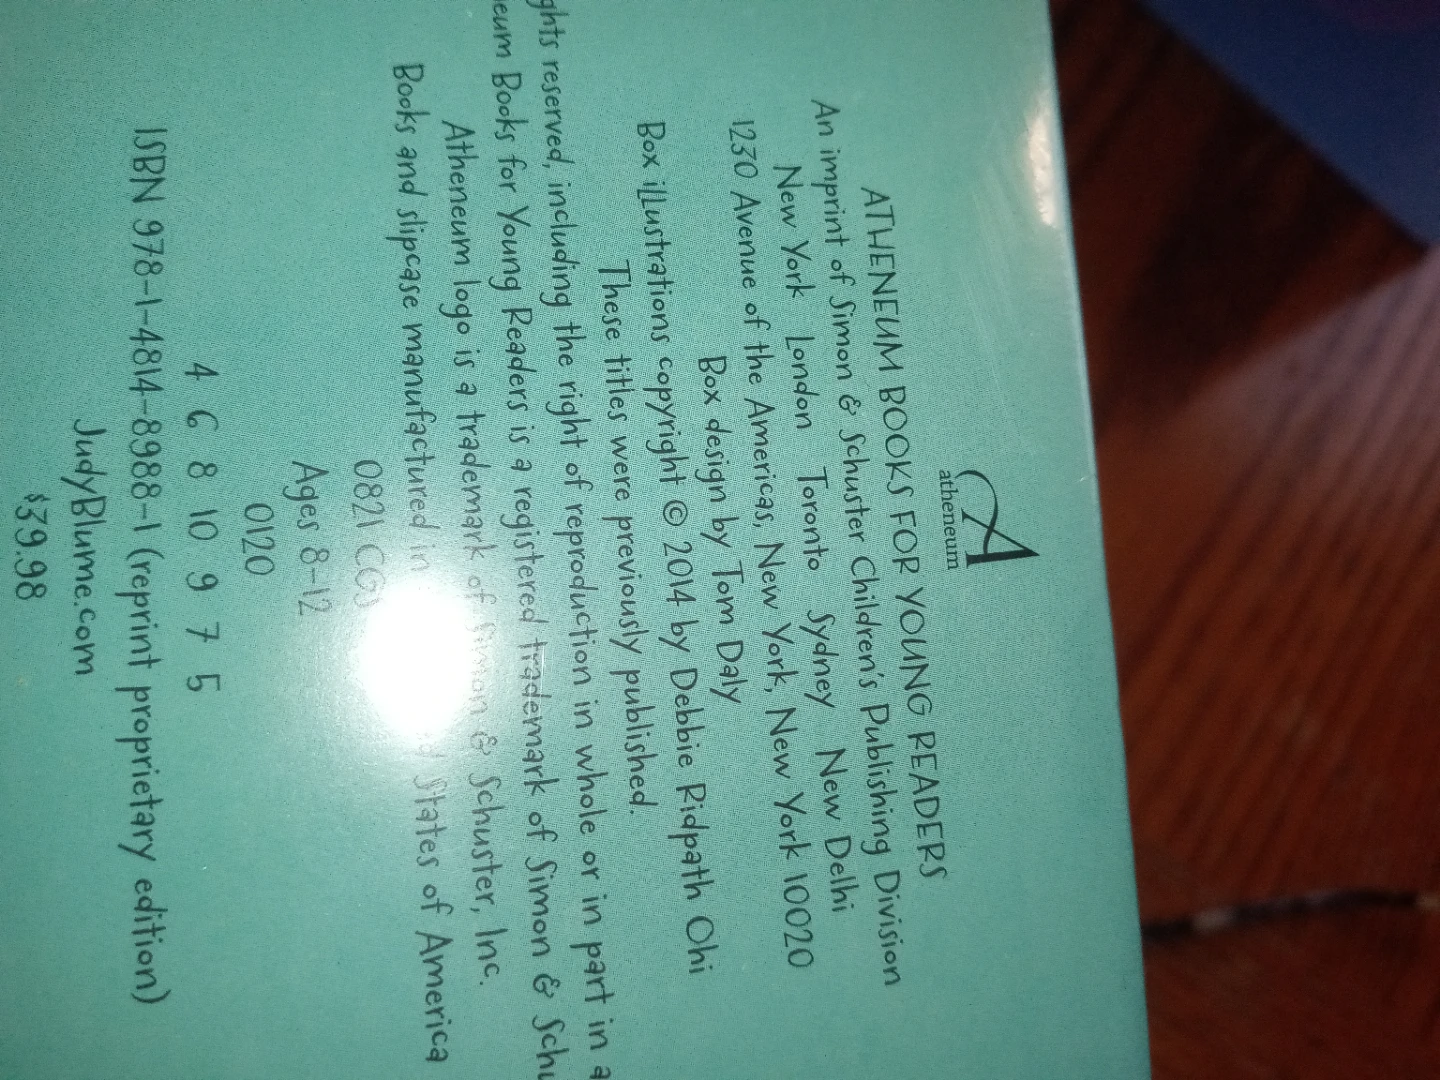 atheneum
ATHENEUM BOOKS FOR YOUNG READERS
An imprint of Simon & Schuster Children's Publishing Division
New York London Toronto Sydney New Delhi
1230 Avenue of the Americas, New York, New York 10020
Box design by Tom Daly
Box illustrations copyright © 2014 by Debbie Ridpath Ohi
These titles were previously published.
reserved, including the right of reproduction in whole or in part in
Books for Young Readers is a registered trademark of Simon &
Atheneum logo is a trademark of Simon & Schuster, Inc.
Books and slipcase manufactured in States of America
0821
Ages 8-12
0120
4 6 8 10 9 7 5
ISBN 978-1-4814-8988-1 (reprint proprietary edition)
JudyBlume.com
$39.98